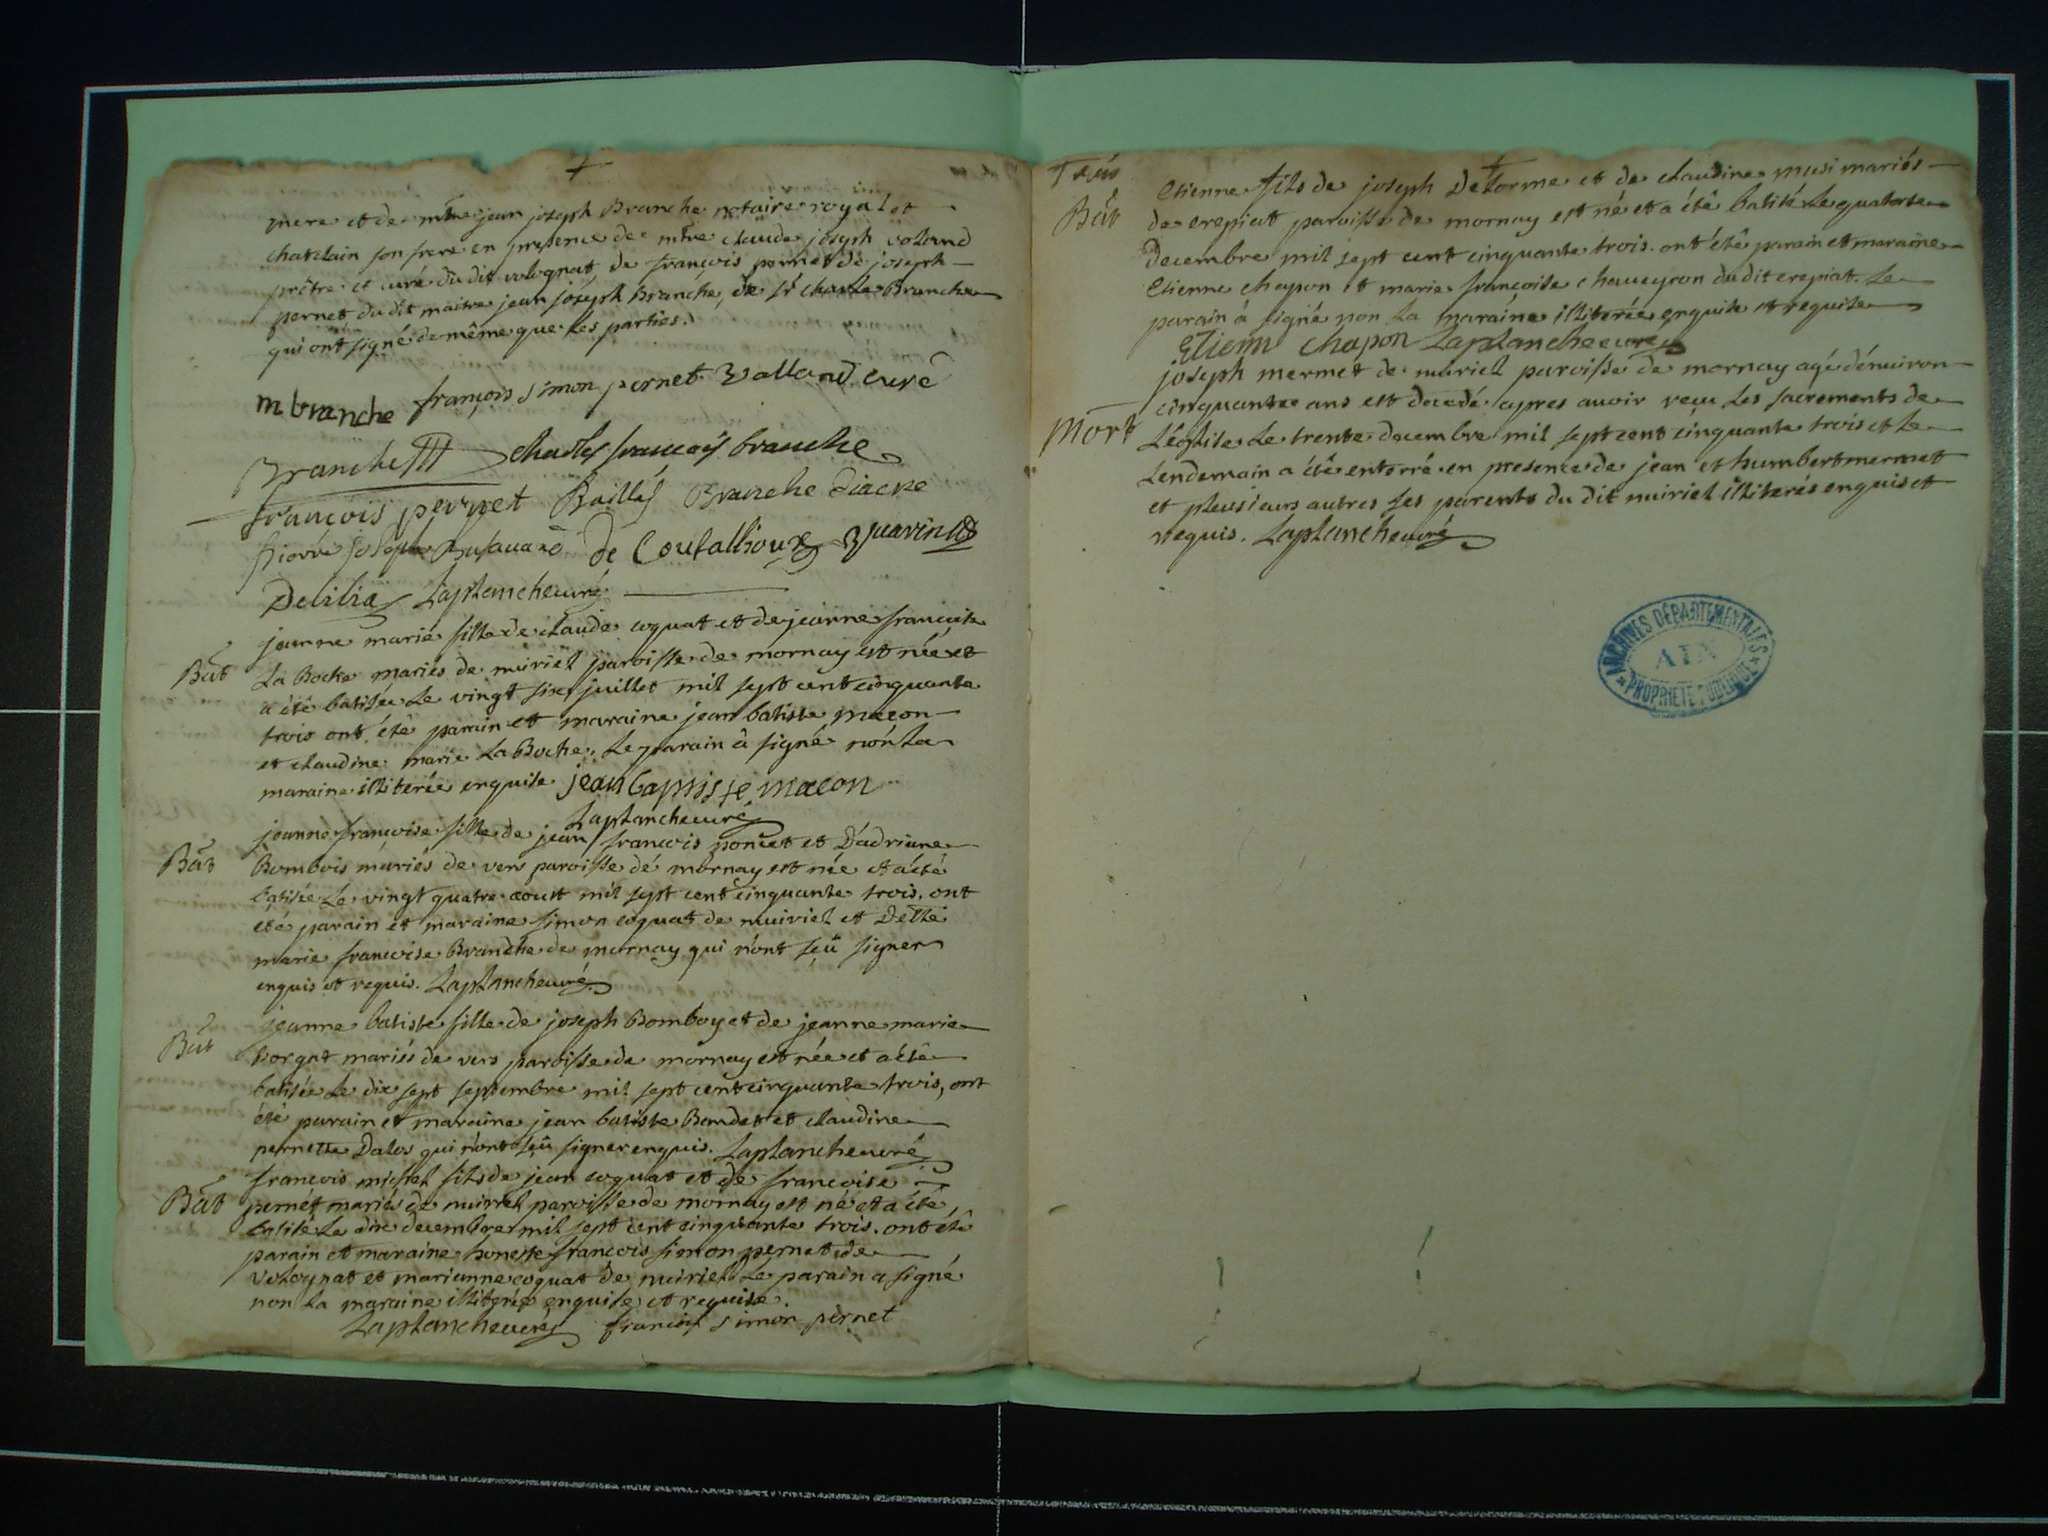 mere et de mtre jean joseph Branche notaire royal et
chatelain son frere en presence de mtre claude joseph voland
prêtre et curé du dit volognat, de françois pernet de joseph
pernet du dit maitre jean joseph Branche, de sr charle Branche
qui ont signé de même que les parties.
m branche françois simon pernet Volland curé
Branche charles françois branche
françois pernet Baillÿ Branche diacre
pierre joseph De Coutalhoux
Delilia Laplanche curé
jeanne marie fille de claude coquat et de jeanne francoise
Bat La Boche mariés de niiriel paroisse de mornay est née et
a été batisée le vingt six juillet mil sept cent cinquante
trois ont été parain et maraine jean batiste macon
et claudine marie La Boche. Le parain à signé non la
maraine illiterée enquise jean baptiste macon
Laplanche curé
jeanne francoise fille de jean francois poncet et D'adriane
Bat Bombois mariés de vers paroisse de mornay est née et a été
batisée Le vingt quatre aoust mil sept cent cinquante trois. ont
eté parain et maraine simon coquat de nuiriel et Delle
marie francoise Branche de mornay qui n'ont sçû signer
enquis et requis. Laplanche curé
jeanne batiste fille de joseph Bomboy et de jeanne marie
Bat Borgat mariés de vers paroisse de mornay est née et a été
batisée Le dix sept septembre mil sept cent cinquante trois, ont
été parain et maraine jean batiste Bondet et claudine
pernette Dalos qui n'ont sçû signer enquis. Laplanche curé
francois michel fils de jean coquat et de francoise
Bat pernét mariés de nuiriel paroisse de mornay est né et a été
batisé Le dix decembre mil sept cent cinquante trois. ont été
parain et maraine honeste francois simon pernet de
volognat et marianne coquat de nuiriel Le parain a signé
non la maraine illiterée enquise et requise.
Laplanche curé francois simon pernet
Etienne fils de joseph Delorme et de claudine musi mariés
Bat de crepiat paroisse de mornay est né et a été batisé Le quatorze
Decembre mil sept cent cinquante trois. ont été parain et maraine
Etienne chapon et marie francoise chaveyron du dit crepiat. Le
parain à signé non La maraine illiterée enquise et requise
Etienn chapon Laplanche curé
joseph mermet de nuriel paroisse de mornay agé d'énuiron
cinquante ans est decedé apres avoir recu les sacrements de
Mort L'église Le trente decembre mil sept cent cinquante trois et le
Lendemain a été enterré en presence de jean et humbert mermet
et plusieurs autres ses parents du dit nuiriel illiterés enquis et
requis. Laplanche curé
ARCHIVES DÉPARTEMENTALES
AIN
PROPRIÉTÉ PUBLIQUE